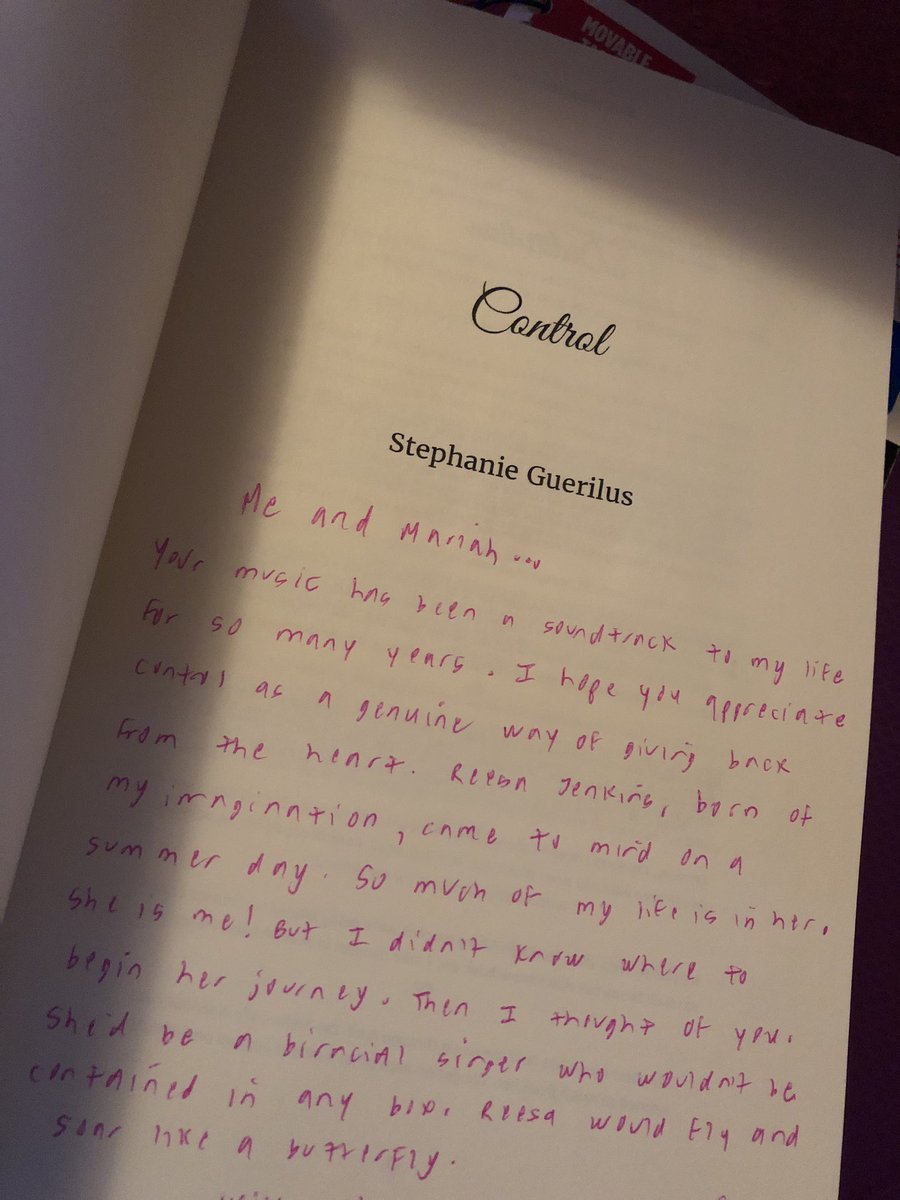 MOVABLE
Control
Stephanie Guerilus
Me and Mariah...
Your music has been a soundtrack to my life
for so many years. I hope you appreciate
control as a genuine way of giving back
from the heart. Reesa Jenkins, born of
my imagination, came to mind on a
summer day. So much of my life is in her.
She is me! But I didn't know where to
begin her journey. Then I thought of you.
She'd be a biracial singer who wouldn't be
contained in any box. Reesa would fly and
soar like a butterfly.